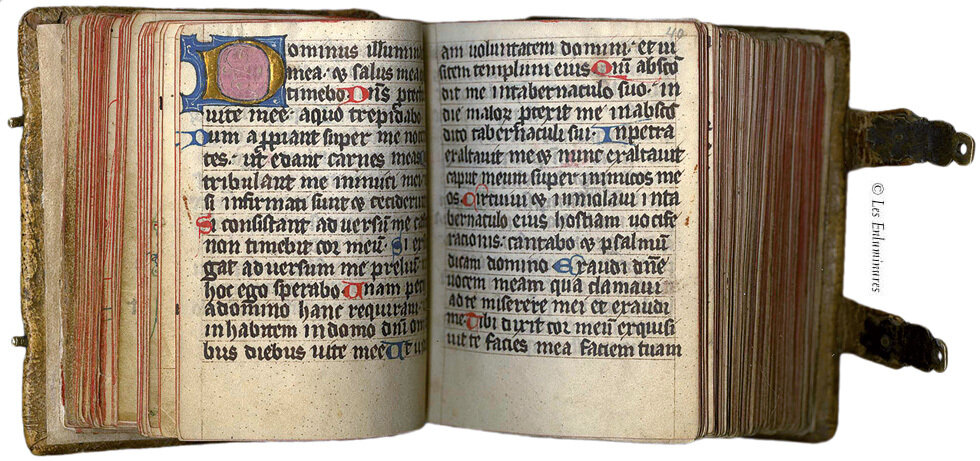 Dominus illumin
mea· & salus mea
timebo Dñs
uite mee· aquo trepidabo
Dum appiant super me noc
tes· ut edant carnes meas
tribulant me inimici mei
si infirmati sunt & cecideru
Si consistant aduersū me ca
non timebit cor meū· Si ex
gat aduersum me preliu
hoc ego sperabo Unam peti
adomino hanc requiram·
inhabitem indomo dñi om
bus diebus uite mee Ut ui
40
am uoluntatem domini· et ui
sitem templum eius Qm̄ absco
dit me intabernaculo suo· in
die malor ptexit me inabsco
dito tabernaculi sui· Inpetra
exaltauit me & nunc exaltauit
caput meum super inimicos me
os Circuiui & inmolaui inta
bernaculo eius hostiam uocife
racionis· cantabo & psalmū
dicam domino Exaudi dñe
uocem meam qua clamaui
adte miserere mei et exaudi
me· Tibi dixit cor meū exquisi
uit te facies mea faciem tuam
© Les Enluminures